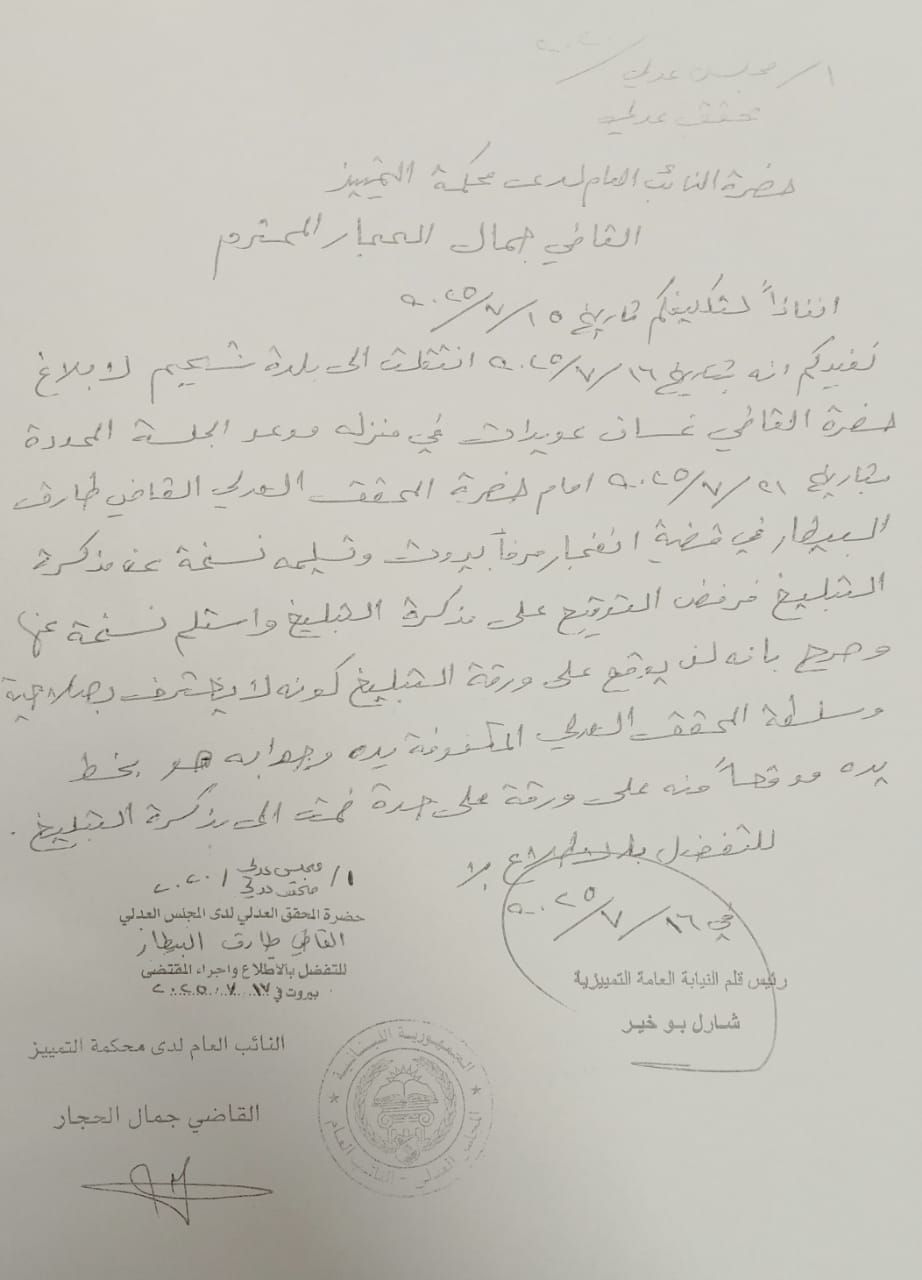 ١/ مجلس عدلي /٢٠٢٠
محقق عدلي
حضرة النائب العام لدى محكمة التمييز
القاضي جمال الحجار المحترم
انفاذاً لتكليفكم تاريخ ١٥/٧/٢٠٢٥
نفيدكم انه بتاريخ ١٦/٧/٢٠٢٥ انتقلت الى بلدة شحيم لابلاغ
حضرة القاضي غسان عويدات في منزله موعد الجلسة المحددة
بتاريخ ٢١/٧/٢٠٢٥ امام حضرة المحقق العدلي القاضي طارق
البيطار في قضية انفجار مرفأ بيروت وتسليمه نسخة عن مذكرة
التبليغ فرفض التوقيع على مذكرة التبليغ واستلم نسخة عنها
وصرح بانه لن يوقع على ورقة التبليغ كونه لا يعترف بصلاحية
وسلطة المحقق العدلي المكفوفة يده وجوابه هو بخط
يده موقعاً منه على ورقة على حدة ضمت الى مذكرة التبليغ.
للتفضل بالاطلاع
في ١٦/٧/٢٠٢٥
رئيس قلم النيابة العامة التمييزية
شارل بو خير
١/ مجلس عدلي /٢٠٢٠
محقق عدلي
حضرة المحقق العدلي لدى المجلس العدلي
القاضي طارق البيطار
للتفضل بالاطلاع واجراء المقتضى
بيروت في ١٧.٧.٢٠٢٥
النائب العام لدى محكمة التمييز
القاضي جمال الحجار
الجمهورية اللبنانية
المجلس العدلي - النائب العام